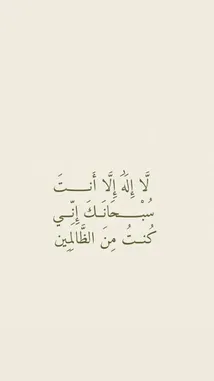 لَّا إِلَٰهَ إِلَّا أَنـــــتَ
سُبْـــــحَانَـكَ إِنِّـــي
كُنـــتُ مِنَ الظَّالِمِين